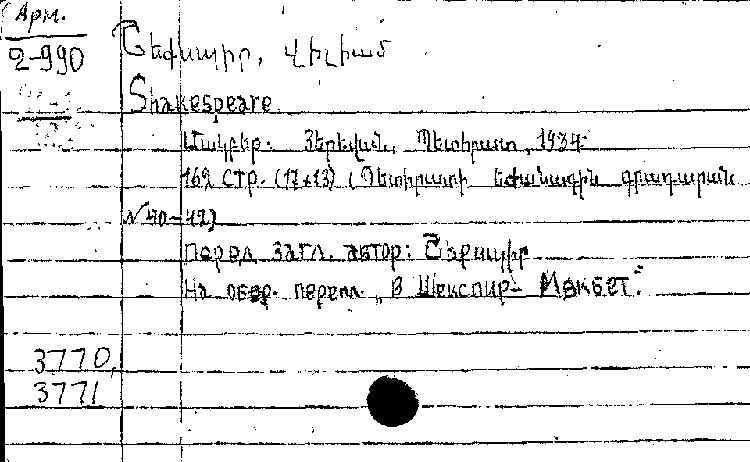 Арм.
2-990
Շեքսպիր, Վիլիամ
Shakespeare
Մակբեթ. Յերեվան, Պետհրատ, 1934.
162 стр. (17x13) (Պետհրատի եժանագին գրադարան
N 40-42)
Перед загл. автор: Շեքսպիր
На обор. перепл. „В Шекспир- Макбет."
3770,
3771